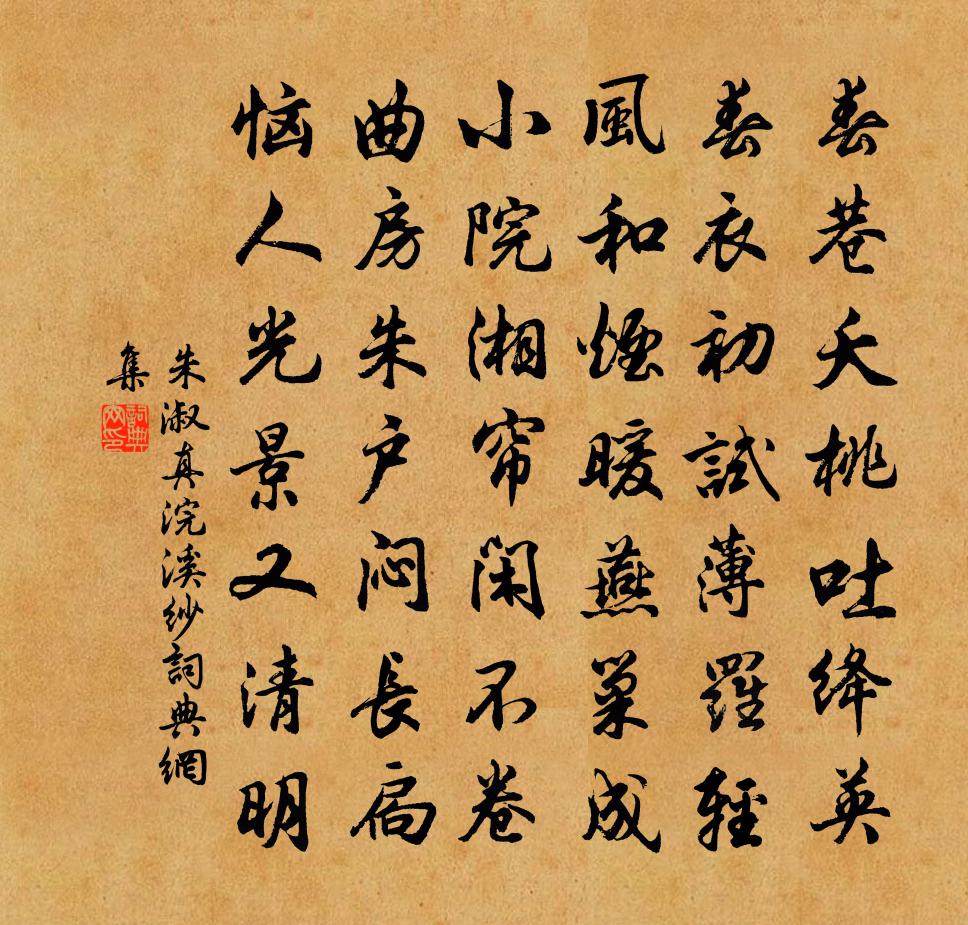 春巷夭桃吐绛英
春衣初試薄羅輕
風和煙暖燕巢成
小院湘帘闲不卷
曲房朱户闷長扃
恼人光景又清明
朱淑真浣溪纱詞典網
集
詞典網印